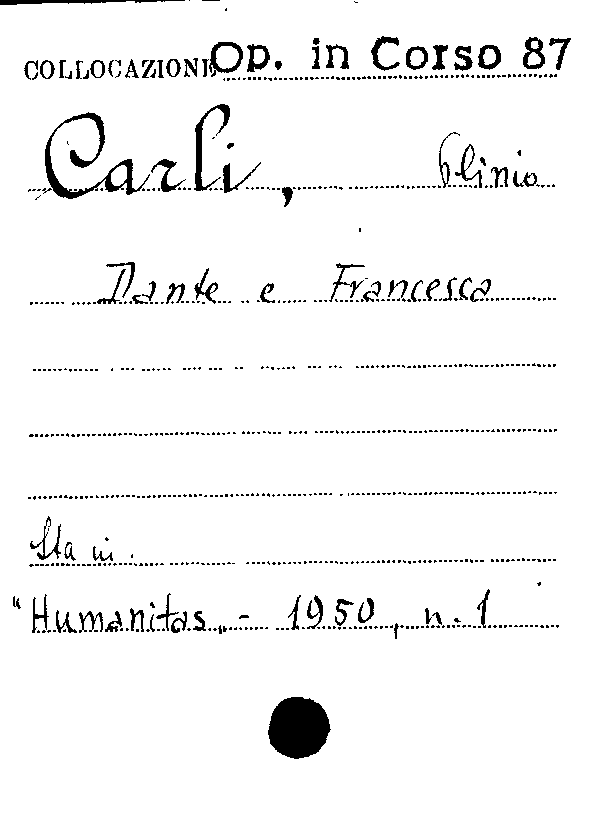 COLLOCAZIONE Op. in Corso 87
Carli, Plinio
Dante e Francesca
Sta in.
"Humanitas„ - 1950, n. 1